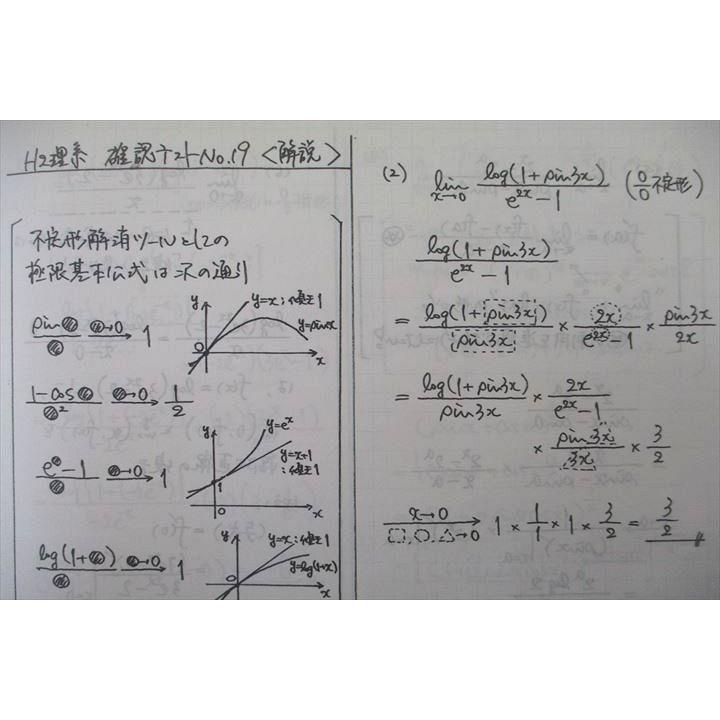 H2理系 確認テストNo.19 <解説>
不定形解消ツールとしての
極限基本公式は次の通り
sin●/● ●→0 → 1
y y=x:傾き1 y=sinx 0 x
1-cos●/●² ●→0 → 1/2
e^●-1/● ●→0 → 1
y y=e^x y=x+1 :傾き1 1 0 x
log(1+●)/● ●→0 → 1
y y=x:傾き1 y=log(1+x) 0 x
(2) lim x→0 log(1+sin3x)/e^2x-1 (0/0不定形)
log(1+sin3x)/e^2x-1
= log(1+sin3x)/sin3x × 2x/e^2x-1 × sin3x/2x
= log(1+sin3x)/sin3x × 2x/e^2x-1
× sin3x/3x × 3/2
x→0 □,○,△→0 → 1 × 1/1 × 1 × 3/2 = 3/2